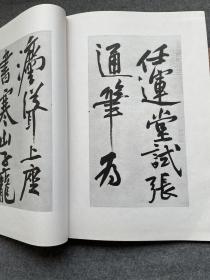 任運堂試張
通筆為
法聳上座
書寒山子龐